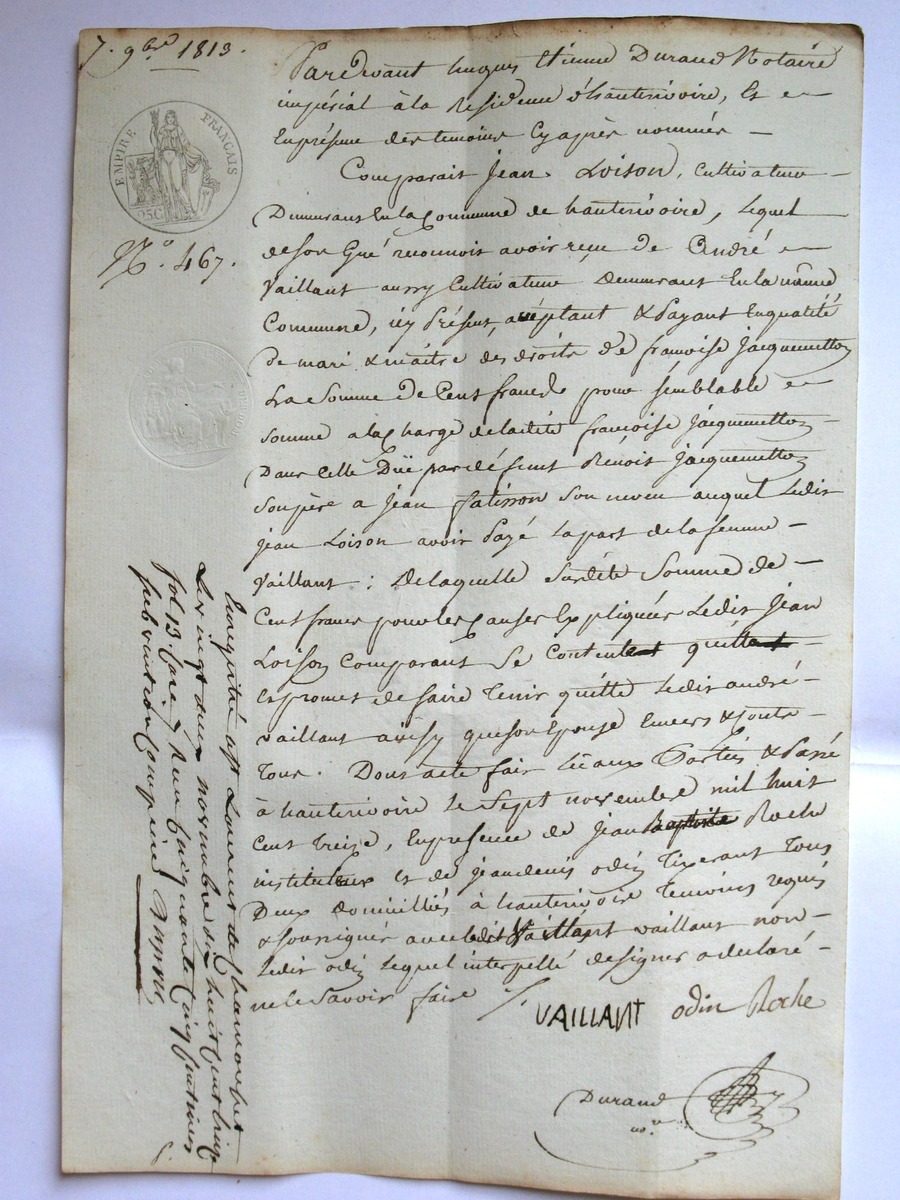 7. 9bre 1813.
EMPIRE FRANÇAIS
25C
No. 467.
Pardevant hugues Etienne Durand Notaire
impérial à la Residence d'hauterivoire, Et
En présence des temoins Cy après nommés
Comparait Jean Loison, Cultivateur
Demeurant En la Commune de hauterivoire, Lequel
de son Gré reconnoit avoir reçu de André
Vaillant aussy Cultivateur Demeurant En la même
Commune, icy Présent, acéptant & Payant En qualité
de mari & maître des droits de françoise Jacquemetton
La Somme de Cent francs pour semblable
Somme a la Charge de ladite françoise Jacquemetton
Dans Celle Düe par défunt Benoit Jacquemetton
Son père a Jean fatisson Son neveu auquel Ledit
Jean Loison avoir Payé la part de la femme
Vaillant : De laquelle Susdite Somme de
Cent francs pour les Causes Expliquées Ledit Jean
Loison Comparant Se Content quitte
Et promet de faire Tenir quitte Ledit andré
Vaillant aussy que son Epouse Envers & Contre
Tous. Dont acte fait Lu aux Parties & Passé
à hauterivoire le Sept novembre mil huit
Cent treize, En présence de Jean Baptiste Roche
instituteur Et de Jean denis odin Tixerant Tous
Deux domiciliés à hauterivoire Temoins requis
& Soussignés avec Ledit Vaillant non
Ledit Lequel interpellé de signer a déclaré
ne le Savoir faire
VAILLANT odin Roche
Durand
no.re
Enregistré a St Laurent de Chamousset
Le vingt deux novembre dix huit cent treize
fol 13 Case 7 Reçu Cinquante Cinq Centimes
Subvention Comprise